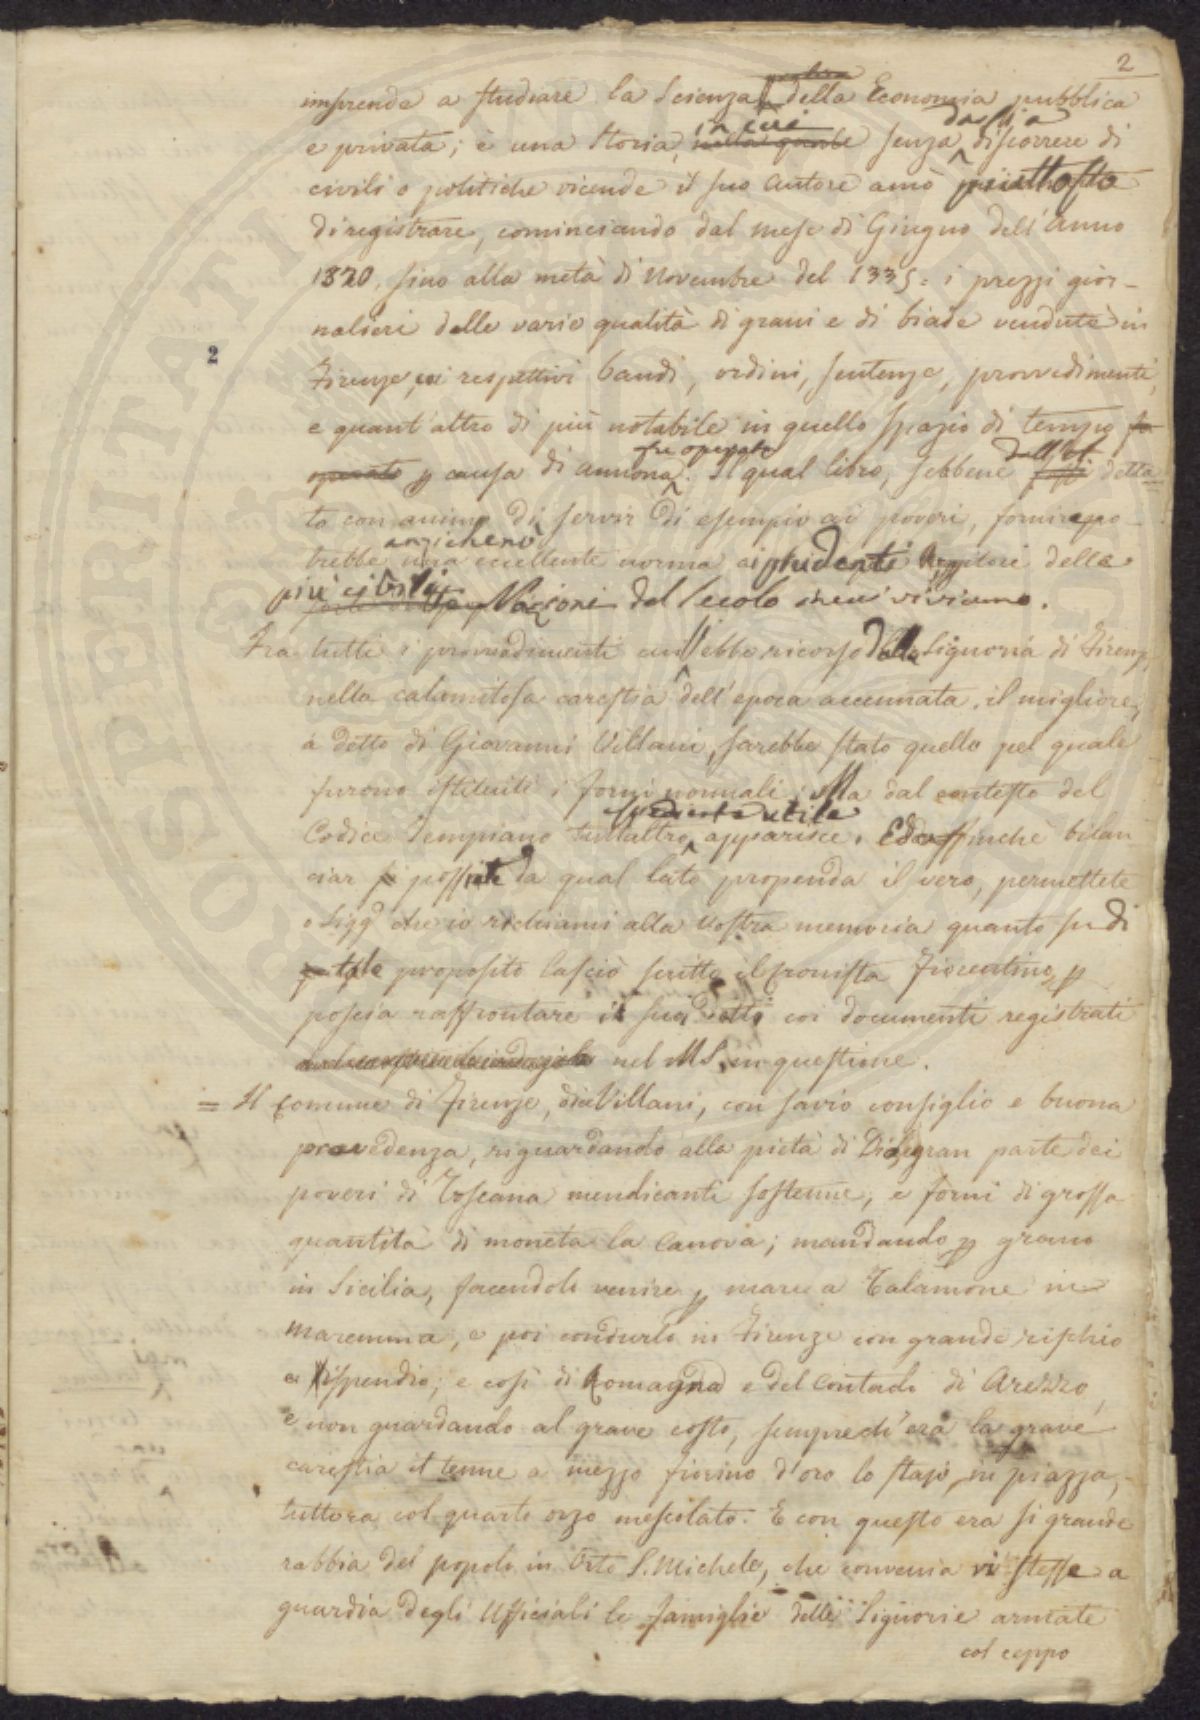 2
imprenda a studiare la Scienza della Economia pubblica
in cui dassi a
e privata; è una storia, nella quale senza discorrere di
civili o politiche vicende il suo Autore amò piuttosto
di registrare, cominciando dal mese di Giugno dell'anno
1320, sino alla metà di Novembre del 1335: i prezzi gior-
nalieri delle varie qualità di grani e di biade vendute in
2
Firenze, coi respettivi bandi, ordini, sentenze, provvedimenti,
e quant'altro di più notabile in quello spazio di tempo fu
fu operato
operato p causa di annona. Il qual libro, sebbene detta
to con animo di servir di esempio ai poveri, fornire po-
anzichenò
trebbe una eccellente norma ai prudenti Reggitori delle
più civili Nazioni del secolo in cui viviamo.
Fra tutti i provvedimenti cui ebbe ricorso dalla Signoria di Firenze
nella calamitosa carestia dell'epoca accennata, il migliore,
a detto di Giovanni Villani, sarebbe stato quello pel quale
furono istituiti i forni normali; Ma dal contesto del
espediente utile
Codice Tempiano tutt'altro apparisce. Ed affinchè bilan
ciar si possa da qual lato propenda il vero, permettete
o Sigg. che io richiami alla vostra memoria quanto su di
tale proposito lasciò scritto il cronista Fiorentino, p
poscia raffrontare i suoi detti coi documenti registrati
nel MS. in questione.
= Il comune di Firenze, dice Villani, con savio consiglio e buona
provedenza, riguardando alla pietà di Dio, gran parte dei
poveri di Toscana mendicanti sostenne, e fornì di grossa
quantità di moneta la Canova; mandando p grano
in Sicilia, facendolo venire p mare a Talamone in
maremma, e poi condurlo in Firenze con grande rischio
e dispendio; e così di Romagna e del Contado di Arezzo,
e non guardando al grave costo, sempre ch'era la grave
carestia il tenne a mezzo fiorino d'oro lo stajo in piazza,
tuttora col quarto orzo mescolato. E con questo era sì grande
rabbia del popolo in Orto S. Michele, che convenia vi stesse a
guardia degli Ufficiali le famiglie delle Signorie armate
col ceppo